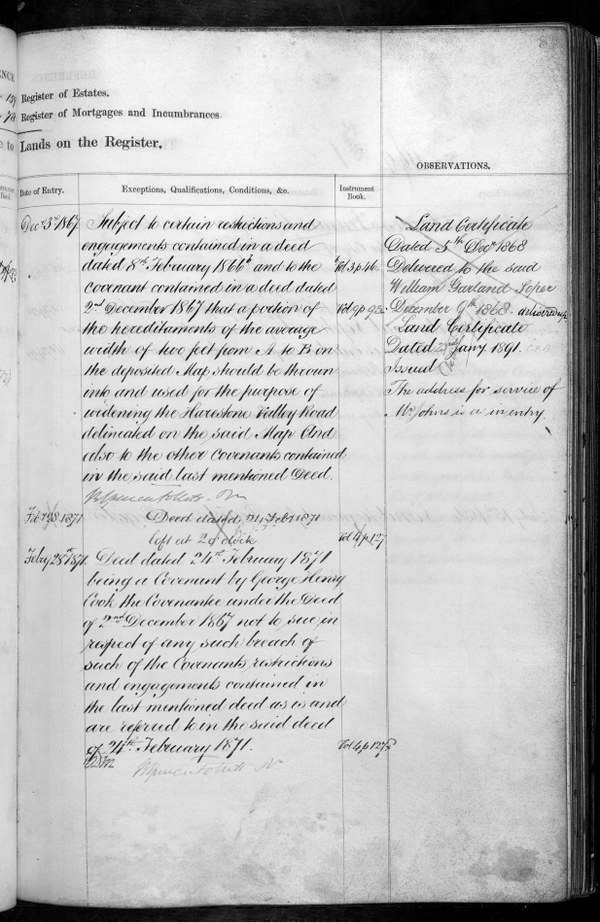 Register of Estates.
Register of Mortgages and Incumbrances
Lands on the Register.
OBSERVATIONS.
Date of Entry.
Exceptions, Qualifications, Conditions, &c.
Instrument
Book.
Decr 3rd 1867
Subject to certain restrictions and
engagements contained in a deed
dated 8th February 1866 and to the
Vol 3 p 46
Covenant contained in a deed dated
2nd December 1867 that a portion of
Vol 9 p 93
the hereditaments of the average
width of two feet from A to B on
the deposited Map should be thrown
into and used for the purpose of
widening the Harestone Valley Road
deliniated on the said Map And
also to the other Covenants contained
in the said last mentioned Deed.
Land Certificate
Dated 5th Decr 1868
Delivered to the said
William Garland Soper
December 9th 1868.
Land Certificate
Dated Jany 1891.
Issued
The address for service of
Mr Johns is a in entry
Feb 1871
Deed dated 24 Feby 1871
left at 2 o'clock
Vol 4 p 127
Febry 28th 1871
Deed dated 24th February 1871
being a Covenant by George Henry
Cook the Covenantee under the Deed
of 2nd December 1867 not to sue in
respect of any such breach of
such of the Covenants restrictions
and engagements contained in
the last mentioned deed as is and
are referred to in the said deed
of 24th February 1871.
Vol 4 p 127